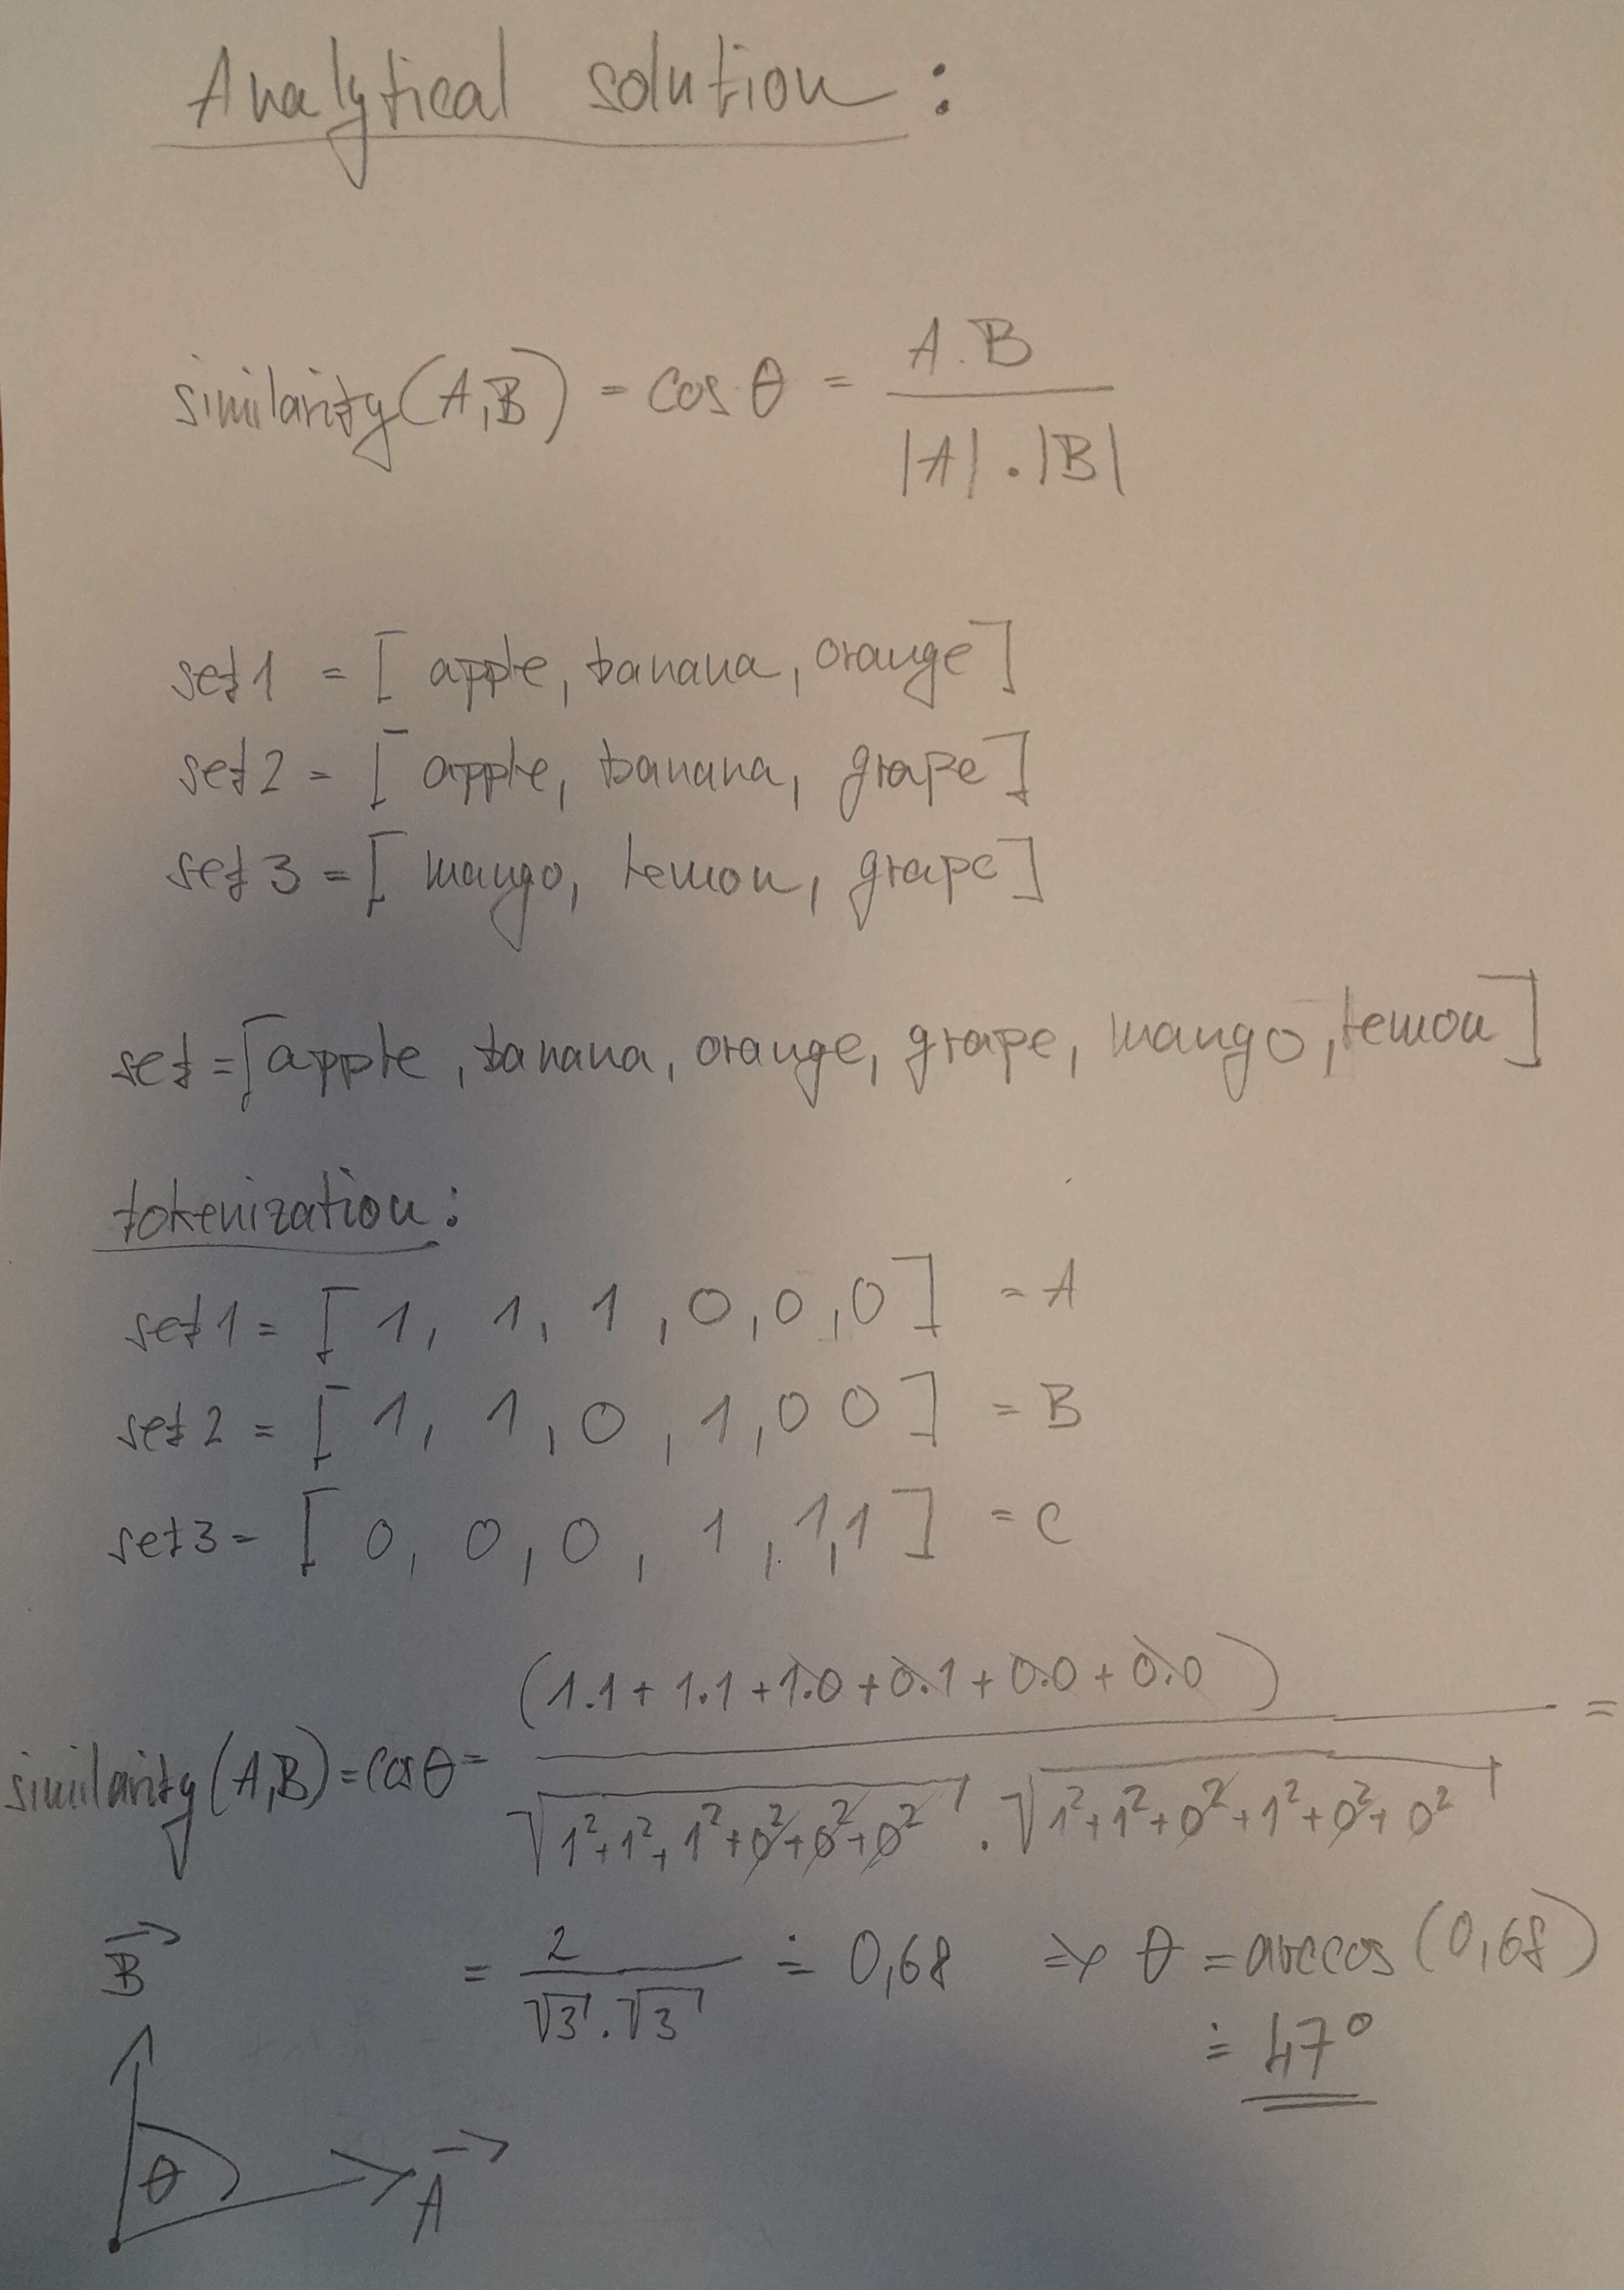 Analytical solution:
similarity(A,B) = cos θ = A.B / |A|.|B|
set1 = [apple, banana, orange]
set2 = [apple, banana, grape]
set3 = [mango, lemon, grape]
set = [apple, banana, orange, grape, mango, lemon]
tokenization:
set1 = [1, 1, 1, 0, 0, 0] = A
set2 = [1, 1, 0, 1, 0 0] = B
set3 = [0, 0, 0, 1, 1, 1] = C
similarity(A,B) = cos θ = (1.1 + 1.1 + 1.0 + 0.1 + 0.0 + 0.0) / √(1²+1²+1²+0²+0²+0²) . √(1²+1²+0²+1²+0²+0²) =
= 2 / √3.√3 ≐ 0,68 => θ = arccos(0,68)
≐ 47°
B
θ
A